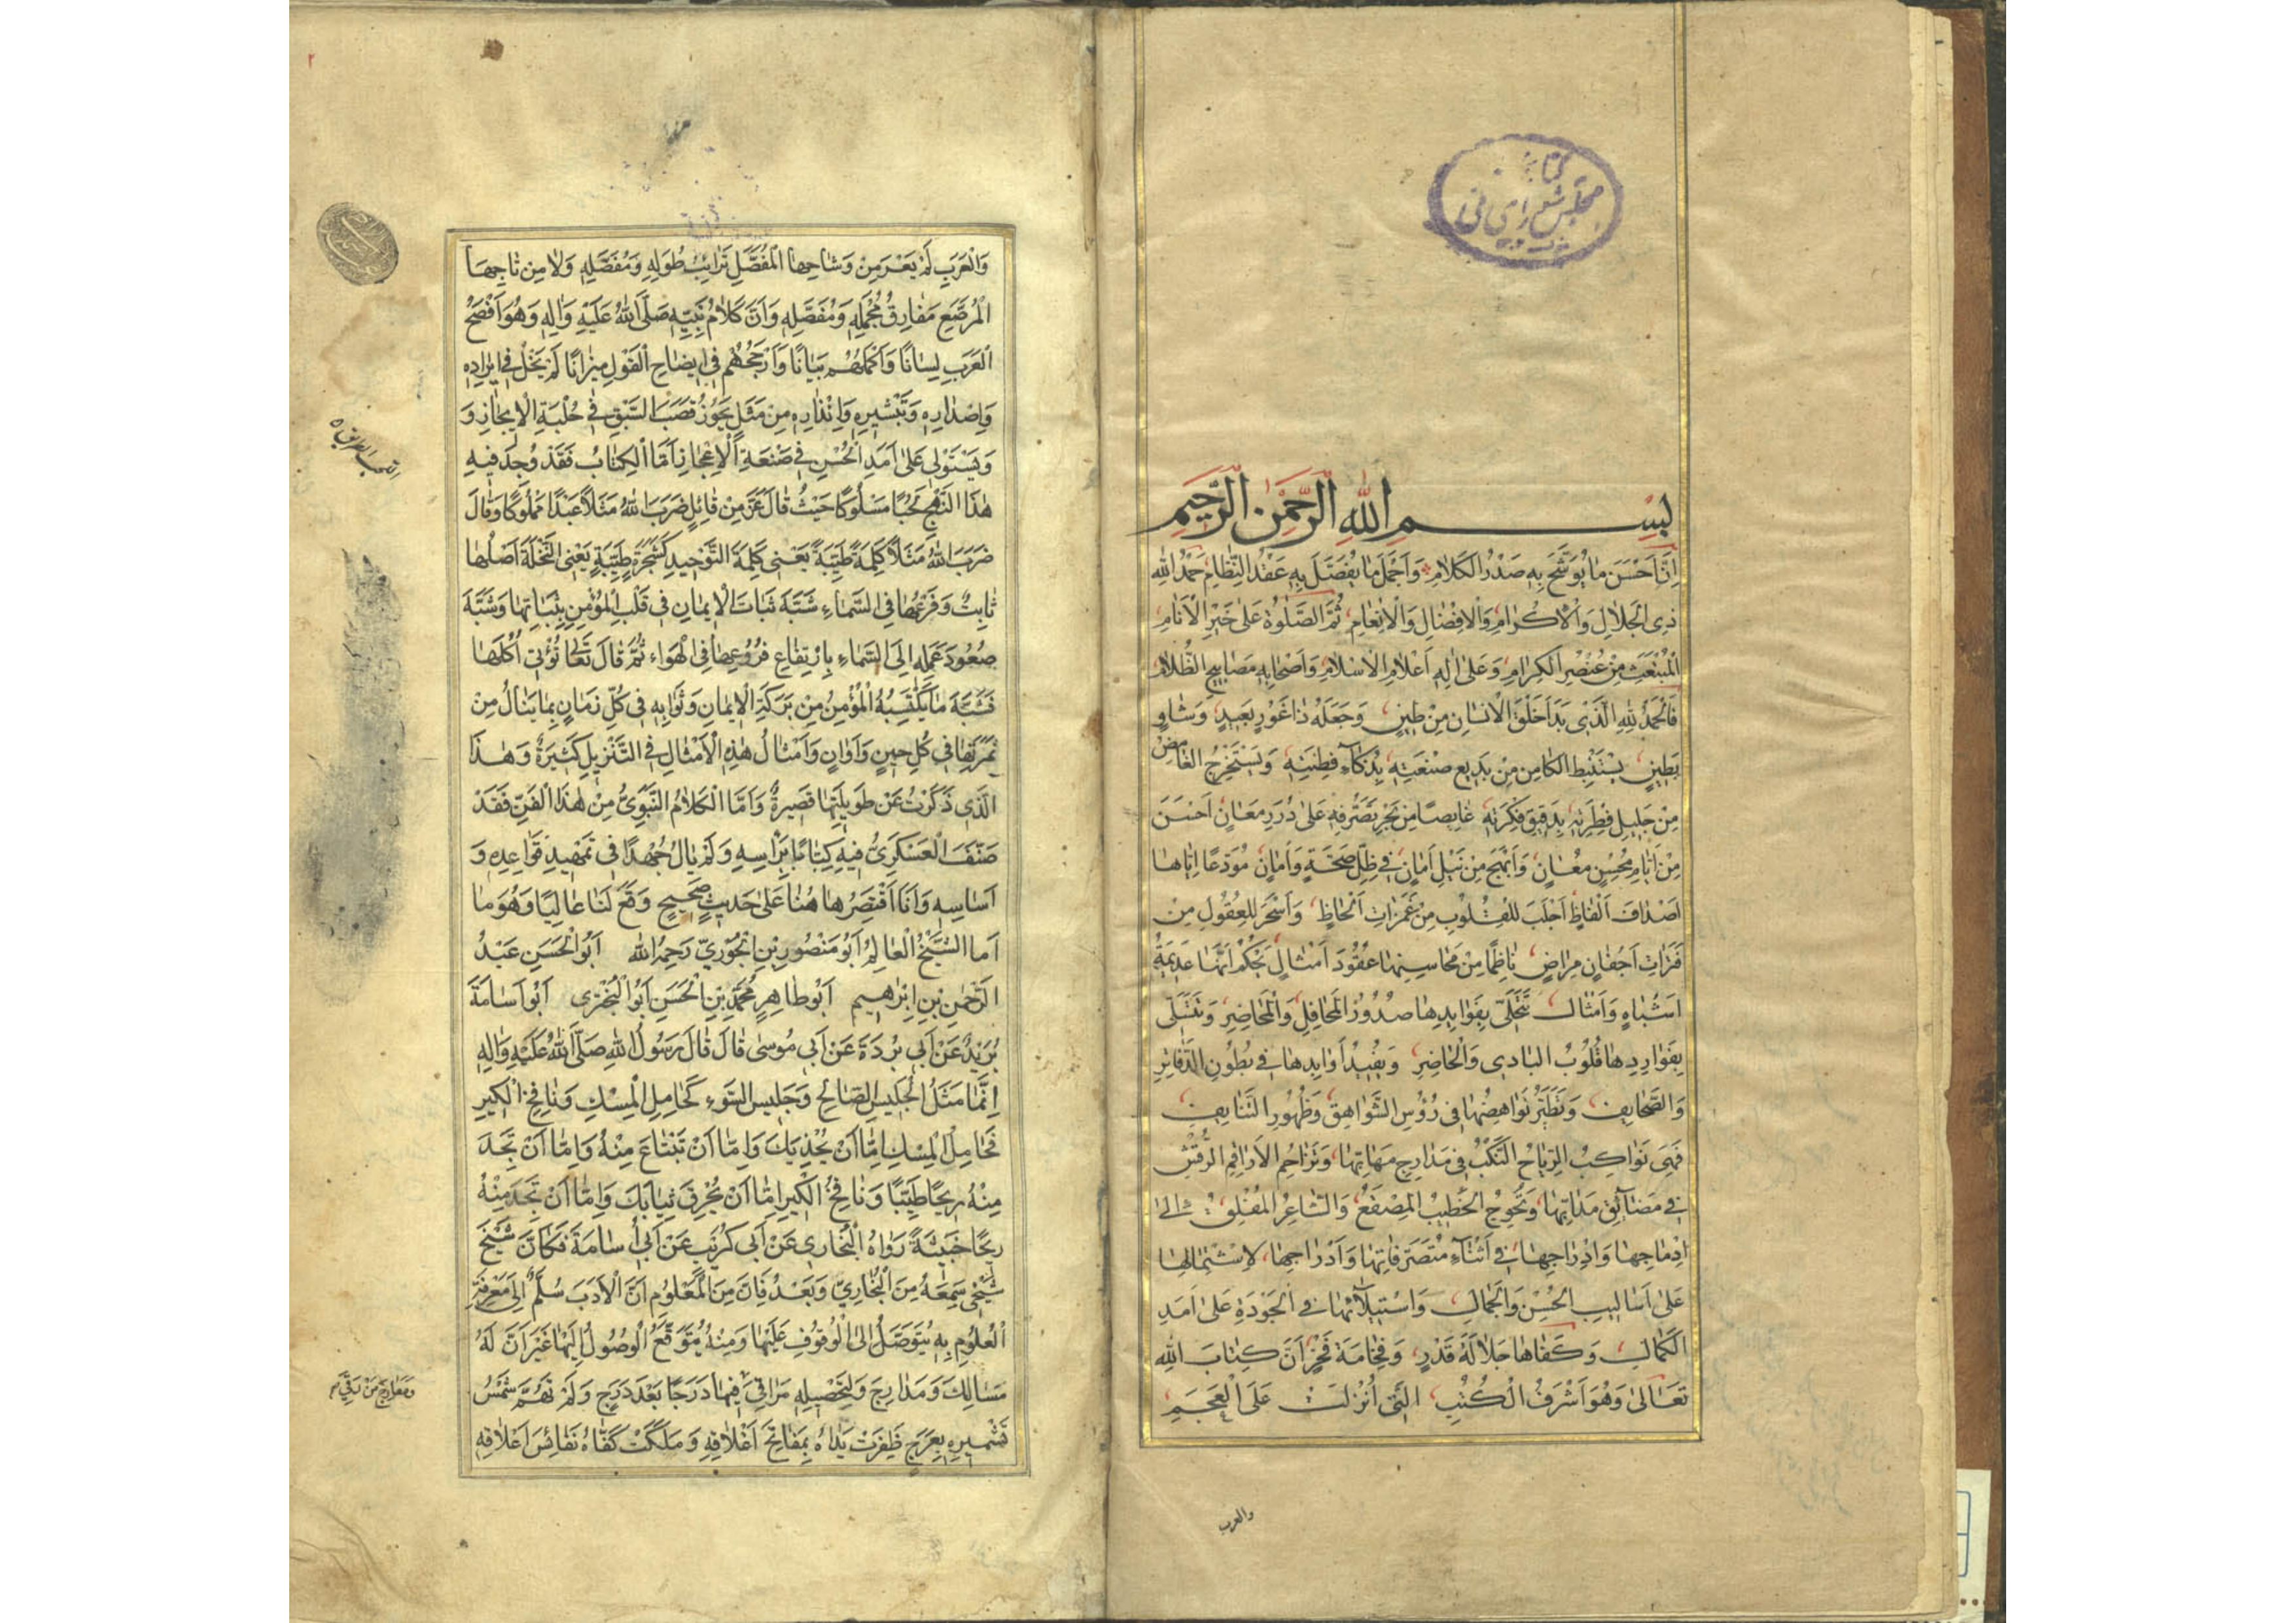 كتابخانه
مجلس شورای ملی
بِسْمِ اللهِ الرَّحْمٰنِ الرَّحِيمِ
اِنَّ اَحْسَنَ مٰا يُوَشَّحُ بِهِ صَدْرُ الْكَلَامِ وَاَجْمَلَ مٰا يُفَصَّلُ بِهِ عَقْدُ النِّظَامِ حَمْدُ اللهِ
ذِى الْجَلَالِ وَالْاِكْرَامِ وَالْاِفْضَالِ وَالْاِنْعَامِ ثُمَّ الصَّلٰوةُ عَلىٰ خَيْرِ الْاَنَامِ
الْمُنْبَعِثِ مِنْ عُنْصُرِ الْكِرَامِ وَعَلىٰ اٰلِهِ اَعْلَامِ الْاِسْلَامِ وَاَصْحَابِهِ مَصَابِيحِ الظَّلَامِ
فَالْحَمْدُ لِلّٰهِ الَّذِى بَدَاَ خَلْقَ الْاِنْسَانِ مِنْ طِينٍ وَجَعَلَهُ ذَا غَوْرٍ بَعِيدٍ وَشَاْوٍ
بَطِينٍ يَسْتَنْبِطُ الْكَامِنَ مِنْ بَدِيعِ صَنْعَتِهِ بِذَكَاءِ فِطْنَتِهِ وَيَسْتَخْرِجُ الْغَامِضَ
مِنْ جَلِيلِ فِطْرَتِهِ بِدَقِيقِ فِكْرَتِهِ غٰايِصًا مِنْ بَحْرِ تَصَرُّفِهِ عَلىٰ دُرَرِ مَعَانٍ اَحْسَنَ
مِنْ اَيَّامِ مُحْسِنٍ مُعَانٍ وَاَبْهَجَ مِنْ نَيْلِ اَمَانٍ فِى ظِلِّ صِحَّةٍ وَاَمَانٍ مُوْدِعًا اِيَّاهَا
اَصْدَافَ اَلْفَاظٍ اَخْلَبَ لِلْقُلُوبِ مِنْ غَمَزَاتِ اَلْحَاظٍ وَاَسْحَرَ لِلْعُقُولِ مِنْ
فَتَرَاتِ اَجْفَانٍ مِرَاضٍ نَاظِمًا مِنْ مَحَاسِنِهَا عُقُودَ اَمْثَالٍ يَحْكُمُ اَنَّهَا عَدِيمَةُ
اَشْبَاهٍ وَاَمْثَالٍ تَتَحَلّٰى بِفَوَايِدِهَا صُدُورُ الْمَحَافِلِ وَالْمَحَاضِرِ وَتَتَسَلّٰى
بِفَوَارِدِهَا قُلُوبُ الْبَادِى وَالْحَاضِرِ وَيُقَيَّدُ اَوَابِدُهَا فِى بُطُونِ الدَّفَاتِرِ
وَالصَّحَايِفِ وَتَطِيرُ نَوَاهِضُهَا فِى رُؤُسِ الشَّوَاهِقِ وَظُهُورِ التَّنَايِفِ
فَهِىَ تُوَاكِبُ الرِّيَاحَ النُّكْبَ فِى مَدَارِجِ مَهَابِّهَا وَتُزَاحِمُ الْاَرَاقِمَ الرُّقْشَ
فِى مَضَائِقِ مَدَابِّهَا وَتُحْوِجُ الْخَطِيبَ الْمِصْقَعَ وَالشَّاعِرَ الْمُفْلِقَ اِلٰى
اِدْمَاجِهَا وَاِدْرَاجِهَا فِى اَثْنَاءِ مُتَصَرِّفَاتِهَا وَاَدْرَاجِهَا لِاشْتِمَالِهَا
عَلىٰ اَسَالِيبِ الْحُسْنِ وَالْجَمَالِ وَاسْتِيلَائِهَا فِى الْجَوْدَةِ عَلىٰ اَمَدِ
الْكَمَالِ وَكَفَاهَا جَلَالَةَ قَدْرٍ وَفَخَامَةَ فَخْرٍ اَنَّ كِتَابَ اللهِ
تَعَالىٰ وَهُوَ اَشْرَفُ الْكُتُبِ الَّتِى اُنْزِلَتْ عَلَى الْعَجَمِ
والعرب
٢
وَالْعَرَبِ لَمْ يَعْرَ مِنْ وِشَاحِهَا الْمُفَصَّلِ تَرَائِبُ طُوَلِهِ وَمُفَصَّلِهِ وَلَا مِنْ تَاجِهَا
الْمُرَصَّعِ مَفَارِقُ مُجْمَلِهِ وَمُفَصَّلِهِ وَاَنَّ كَلَامَ نَبِيِّهِ صَلَّى اللهُ عَلَيْهِ وَاٰلِهِ وَهُوَ اَفْصَحُ
الْعَرَبِ لِسَانًا وَاَكْمَلُهُمْ بَيَانًا وَاَرْجَحُهُمْ فِى اِيضَاحِ الْقَوْلِ مِيزَانًا لَمْ يَخْلُ فِى اِيرَادِهِ
وَاِصْدَارِهِ وَتَبْشِيرِهِ وَاِنْذَارِهِ مِنْ مَثَلٍ يَحُوزُ قَصَبَ السَّبْقِ فِى حَلْبَةِ الْاِيجَازِ وَ
وَيَسْتَوْلِى عَلىٰ اَمَدِ الْحُسْنِ فِى صَنْعَةِ الْاِعْجَازِ اَمَّا الْكِتَابُ فَقَدْ وُجِدَ فِيهِ
هٰذَا النَّهْجُ لَحْبًا مَسْلُوكًا حَيْثُ قَالَ عَزَّ مِنْ قَائِلٍ ضَرَبَ اللهُ مَثَلًا عَبْدًا مَمْلُوكًا وَقَالَ
ضَرَبَ اللهُ مَثَلًا كَلِمَةً طَيِّبَةً يَعْنِى كَلِمَةَ التَّوْحِيدِ كَشَجَرَةٍ طَيِّبَةٍ يَعْنِى النَّخْلَةَ اَصْلُهَا
ثَابِتٌ وَفَرْعُهَا فِى السَّمَاءِ شَبَّهَ ثَبَاتَ الْاِيمَانِ فِى قَلْبِ الْمُؤْمِنِ بِثَبَاتِهَا وَشَبَّهَ
صُعُودَ عَمَلِهِ اِلَى السَّمَاءِ بِارْتِفَاعِ فُرُوعِهَا فِى الْهَوَاءِ ثُمَّ قَالَ تَعَالىٰ تُؤْتِى اُكُلَهَا
فَشَبَّهَ مَا يَكْتَسِبُهُ الْمُؤْمِنُ مِنْ بَرَكَةِ الْاِيمَانِ وَثَوَابِهِ فِى كُلِّ زَمَانٍ بِمَا يَنَالُ مِنْ
ثَمَرَتِهَا فِى كُلِّ حِينٍ وَاَوَانٍ وَاَمْثَالُ هٰذِهِ الْاَمْثَالِ فِى التَّنْزِيلِ كَثِيرَةٌ وَهٰذَا
الَّذِى ذَكَرْتُ عَنْ طَوِيلَتِهَا قَصِيرَةٌ وَاَمَّا الْكَلَامُ النَّبَوِىُّ مِنْ هٰذَا الْفَنِّ فَقَدْ
صَنَّفَ الْعَسْكَرِىُّ فِيهِ كِتَابًا بِرَأْسِهِ وَلَمْ يَالُ جُهْدًا فِى تَمْهِيدِ قَوَاعِدِهِ وَ
اَسَاسِهِ وَاَنَا اَقْتَصِرُ هَاهُنَا عَلىٰ حَدِيثٍ صَحِيحٍ وَقَعَ لَنَا عَالِيًا وَهُوَ مَا
اَمَا الشَّيْخُ الْعَالِمُ اَبُو مَنْصُورِ بْنِ الْجُوْرِىِّ رَحِمَهُ اللهُ اَبُو الْحَسَنِ عَبْدُ
الرَّحْمٰنِ بْنِ اِبْرٰهِيمَ اَبُو طَاهِرٍ مُحَمَّدِ بْنِ الْحَسَنِ اَبُو الْبَخْتَرِى اَبُو اُسَامَةَ
بُرَيْدٌ عَنْ اَبِى بُرْدَةَ عَنْ اَبِى مُوسىٰ قَالَ قَالَ رَسُولُ اللهِ صَلَّى اللهُ عَلَيْهِ وَاٰلِهِ
اِنَّمَا مَثَلُ الْجَلِيسِ الصَّالِحِ وَجَلِيسِ السَّوْءِ كَحَامِلِ الْمِسْكِ وَنَافِخِ الْكِيرِ
فَحَامِلُ الْمِسْكِ اِمَّا اَنْ يُحْذِيَكَ وَاِمَّا اَنْ تَبْتَاعَ مِنْهُ وَاِمَّا اَنْ تَجِدَ
مِنْهُ رِيحًا طَيِّبًا وَنَافِخُ الْكِيرِ اِمَّا اَنْ يُحْرِقَ ثِيَابَكَ وَاِمَّا اَنْ تَجِدَ مِنْهُ
رِيحًا خَبِيثَةً رَوَاهُ الْبُخَارِى عَنْ اَبِى كُرَيْبٍ عَنْ اَبِى اُسَامَةَ فَكَاَنَّ شَيْخَ
شَيْخِى سَمِعَهُ مِنَ الْبُخَارِىِّ وَبَعْدُ فَاِنَّ مِنَ الْمَعْلُومِ اَنَّ الْاَدَبَ سُلَّمٌ اِلىٰ مَعْرِفَةِ
الْعُلُومِ بِهِ يُتَوَصَّلُ اِلَى الْوُقُوفِ عَلَيْهَا وَمِنْهُ يُتَوَقَّعُ الْوُصُولُ اِلَيْهَا غَيْرَ اَنَّ لَهُ
مَسَالِكَ وَمَدَارِجَ وَلِتَحْصِيلِهِ مَرَاقِىَ فِيهَا دَرَجًا بَعْدَ دَرَجٍ وَلَمْ تَهُمَّ شَمْسُ
تَشْمِيرِهِ بِعَرَجٍ ظَفِرَتْ يَدَاهُ بِمَفَاتِحِ اَغْلَاقِهِ وَمَلَكَتْ كَفَّاهُ نَفَائِسَ اَعْلَاقِهِ
وَمَعَارِجَ مَنْ رَقِىَ